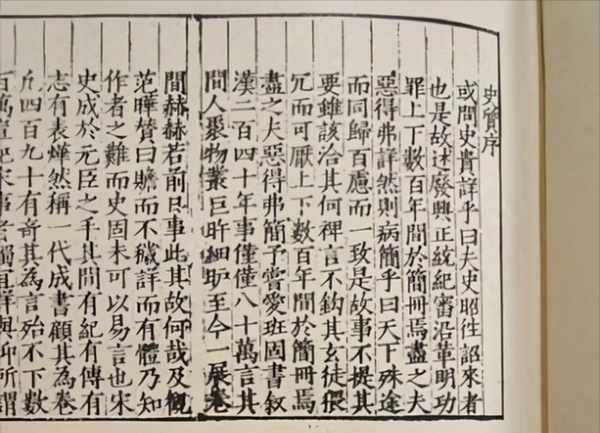 史簡序
或問史貴詳乎曰夫史昭徃詔來者
也是故述廢興正統紀審沿革明功
罪上下數百年間於簡冊焉盡之夫
惡得弗詳然則病簡乎曰天下殊途
而同歸百慮而一致是故事不提其
要雖該洽其何裨言不鈎其玄徒猥
冗而可厭上下數百年間於簡冊焉
盡之夫惡得弗簡予嘗愛班固書叙
漢二百四十年事僅僅八十萬言其
間人聚物叢巨旿細昈至今一展卷
間赫赫若前日事此其故何哉及觀
范曄贊曰贍而不穢詳而有體乃知
作者之難而史固未可以易言也宋
史成於元臣之手其間有紀有傳有
志有表燁然稱一代成書顧其為卷
凡四百九十有奇其為言殆不下數
百萬豈紀宋事者獨宜詳與抑所謂